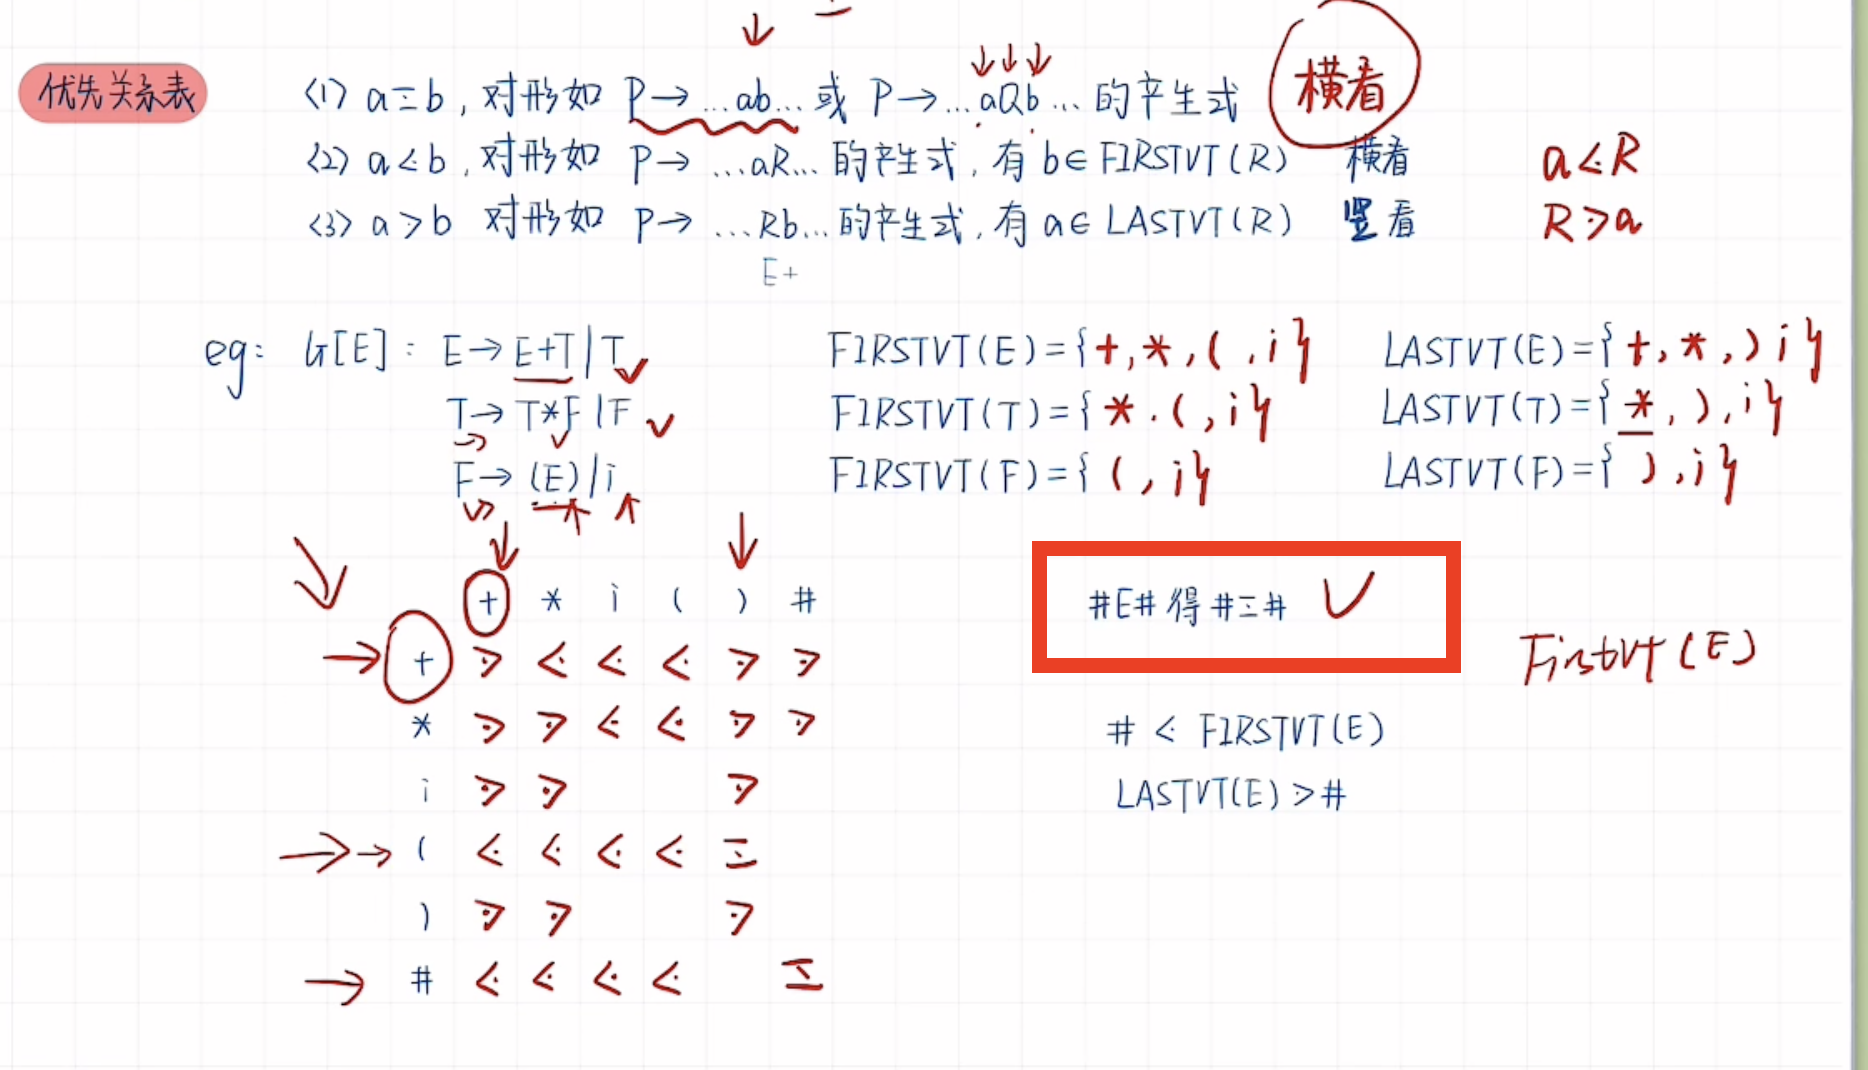 优先关系表
<1> a≡b, 对形如 P→ …ab… 或 P→…aQb… 的产生式 横看
<2> a⋖b, 对形如 P→ …aR… 的产生式, 有 b∈FIRSTVT(R) 横看 a⋖R
<3> a>b 对形如 P→ …Rb… 的产生式, 有 a∈LASTVT(R) 竖看 R⋗a
E+
eg: G[E]: E→E+T|T FIRSTVT(E)={+,*,(,i} LASTVT(E)={+,*,) i}
T→T*F|F FIRSTVT(T)={*.(,i} LASTVT(T)={*,),i}
F→(E)|i FIRSTVT(F)={(,i} LASTVT(F)={),i}
+ * i ( ) # #E#得#≡#
+ ⋗ ⋖ ⋖ ⋖ ⋗ ⋗ Firstvt(E)
* ⋗ ⋗ ⋖ ⋖ ⋗ ⋗ # ⋖ FIRSTVT(E)
i ⋗ ⋗ ⋗ LASTVT(E)>#
( ⋖ ⋖ ⋖ ⋖ ≡
) ⋗ ⋗ ⋗
# ⋖ ⋖ ⋖ ⋖ ≡